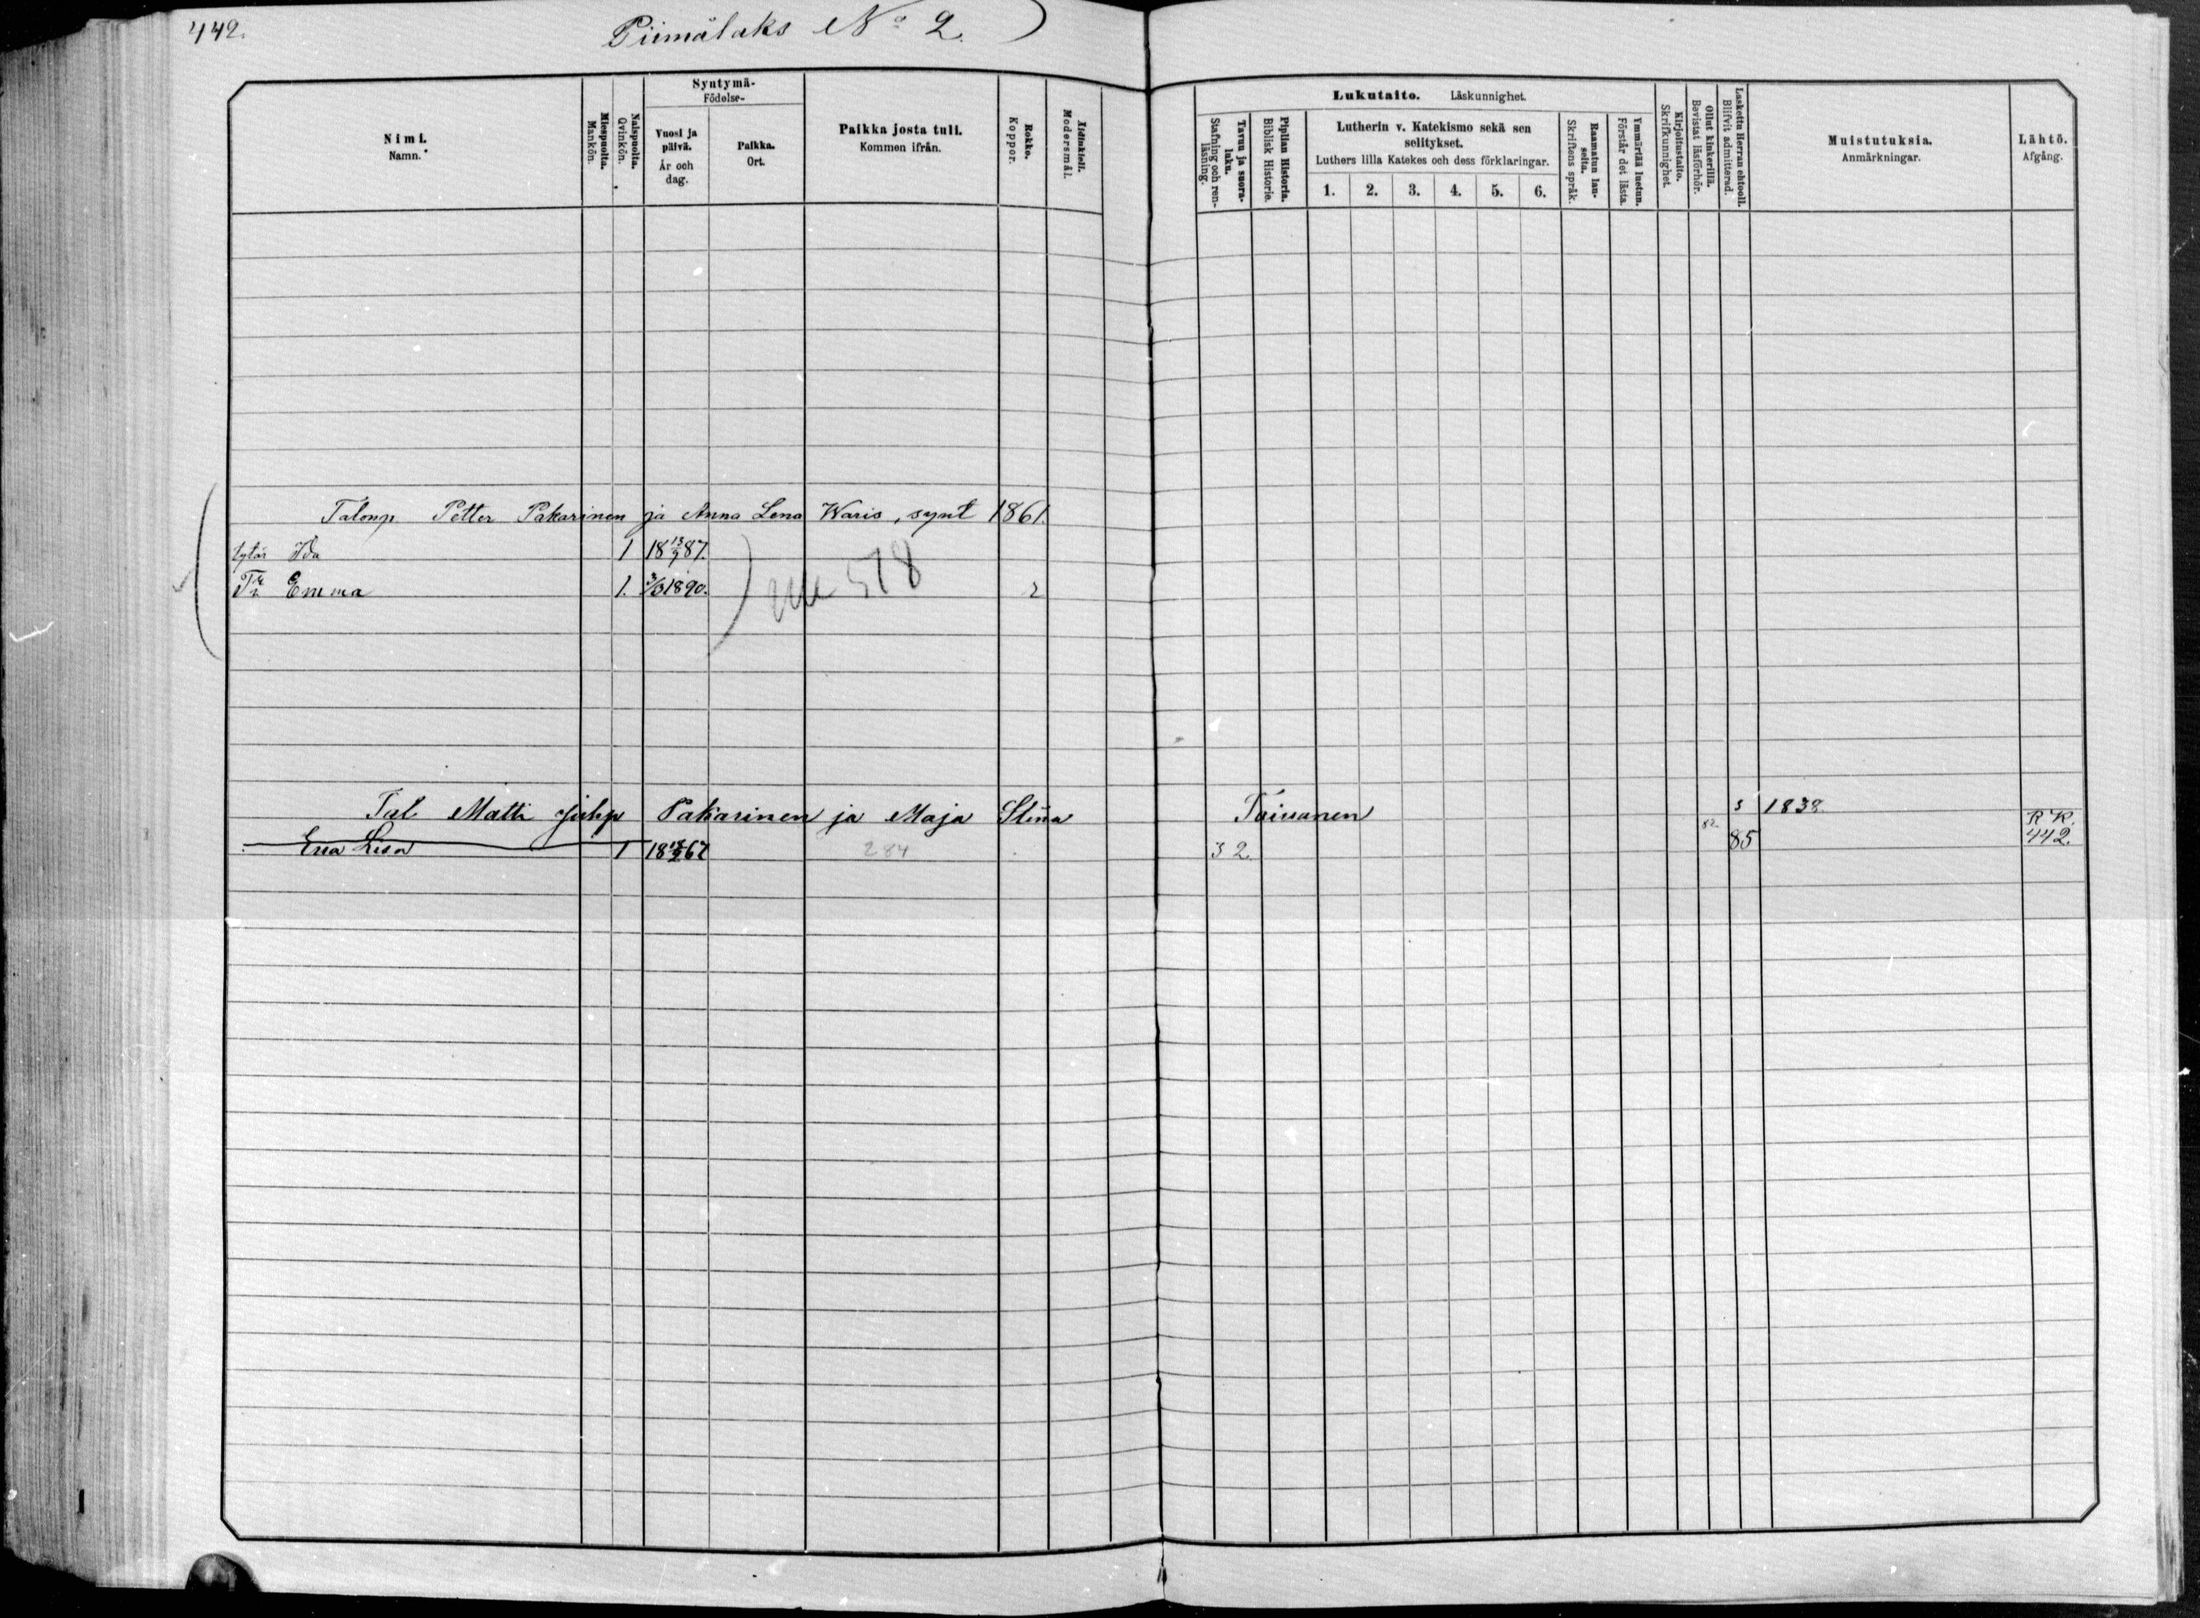 442.
Piimälaks No 2.
Syntymä-
Födelse-
Nimi.
Namn.
Miespuolia.
Mankön.
Naispuolia.
Qvinkön.
Vuosi ja päivä.
År och dag.
Paikka.
Ort.
Paikka josta tuli.
Kommen ifrån.
Rokko.
Koppor.
Äidinkieli.
Modersmål.
Lukutaito. Läskunnighet.
Tavuu ja suora-luku.
Stafning och ren-läsning.
Piplian Historia.
Biblisk Historie.
Lutherin v. Katekismo sekä sen selitykset.
Luthers lilla Katekes och dess förklaringar.
1. 2. 3. 4. 5. 6.
Raamatun lau-seita.
Skriftens språk.
Ymmärtää luetun.
Förstår det lästa.
Kirjoitustaito.
Skrifkunnighet.
Ollut kinkerillä.
Bevistat läsförhör.
Laskettu Herran ehtooll.
Blifvit admitterad.
Muistutuksia.
Anmärkningar.
Lähtö.
Afgång.
Talonp Petter Pakarinen ja Anna Lena Waris, synt 1861.
tytär Ida 1 18 13/9 87.
Tr Emma 1. 3/3 1890. 2
578
Tal Matti Juhp Pakarinen ja Maja Stina Toivanen 3 1838
R K.
Eva Lisa 1 284 3 2. 82. 85 442.